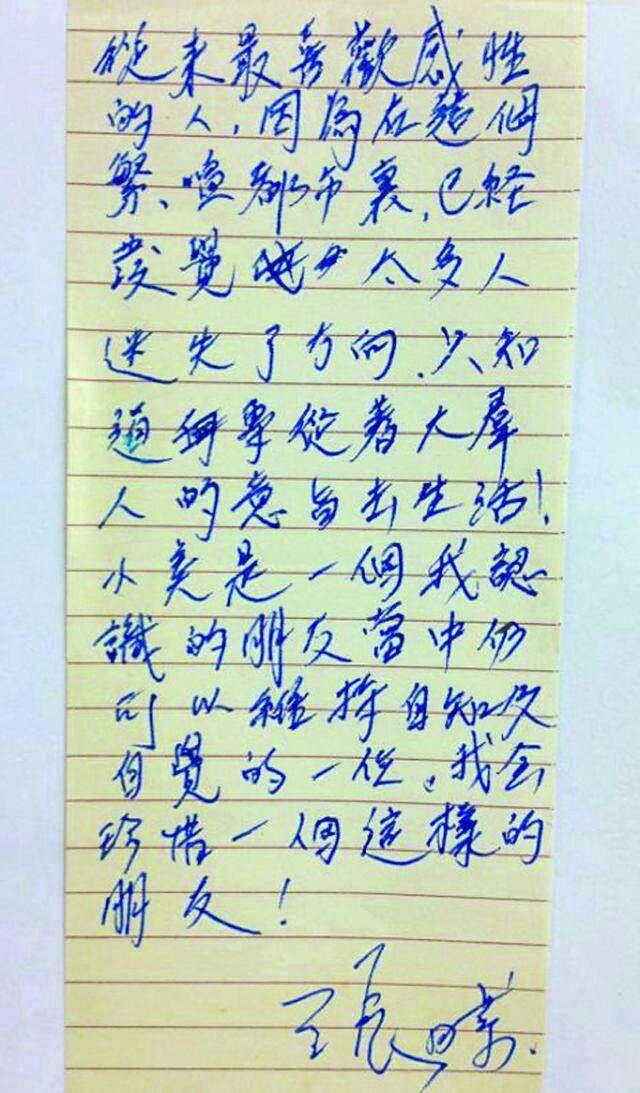 從来最喜歡感性
的人，因為在這個
繁喧都市裏，已経
發覺 太多人
迷失了方向，只知
道 從著大羣
人的意旨去生活！
小 是一個我認
識的朋友當中仍
可以維持自知及
自覺的一位，我会
珍惜一個這樣的
朋友！